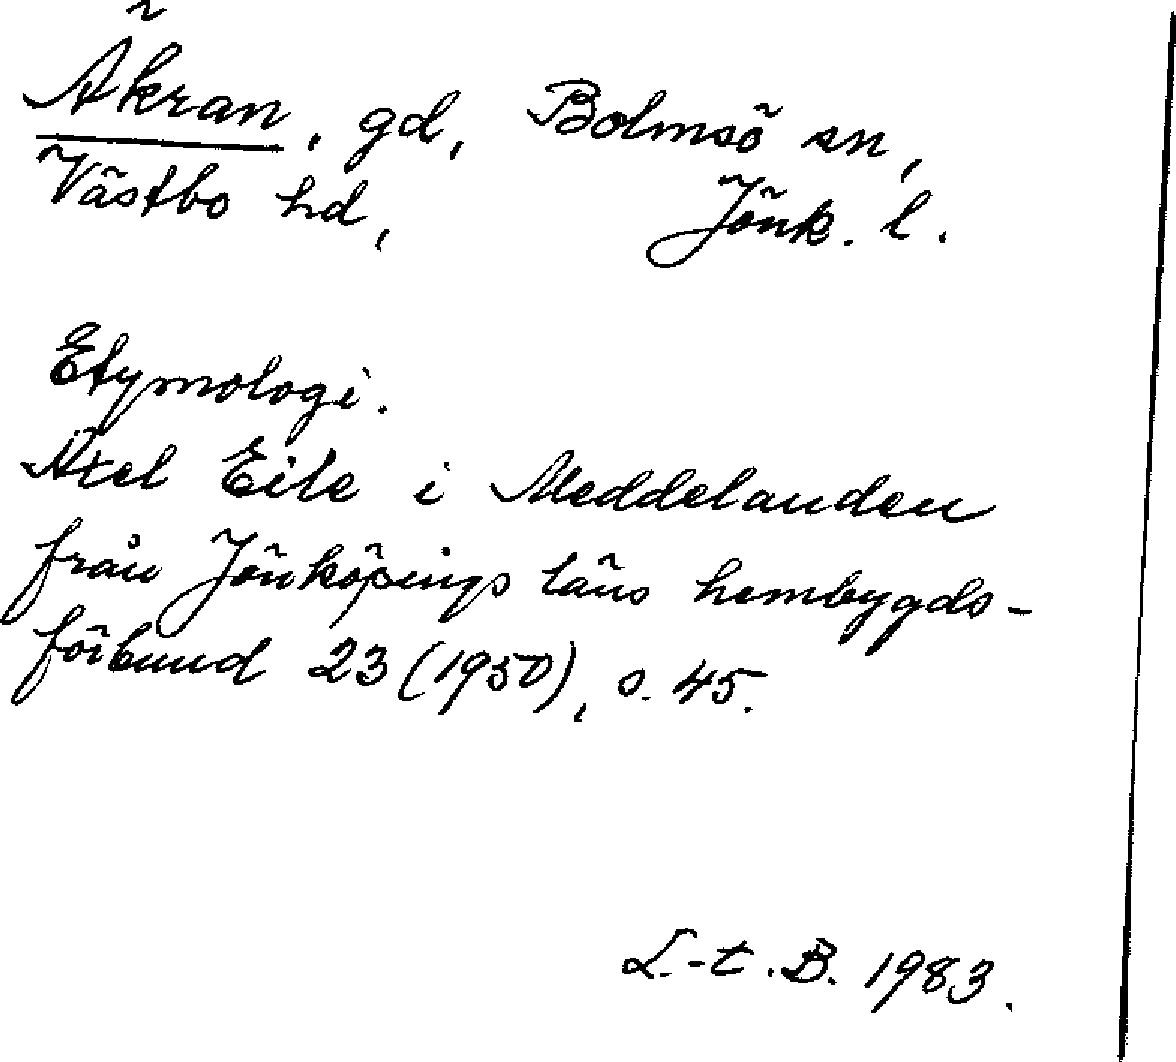 Äkran, gd, Bolmsö sn,
Västbo hd, Jönk. l.
Etymologi.
Axel Eile i Meddelanden
från Jönköpings läns hembygds-
förbund 23 (1950), s. 45.
L.-t. B. 1983.